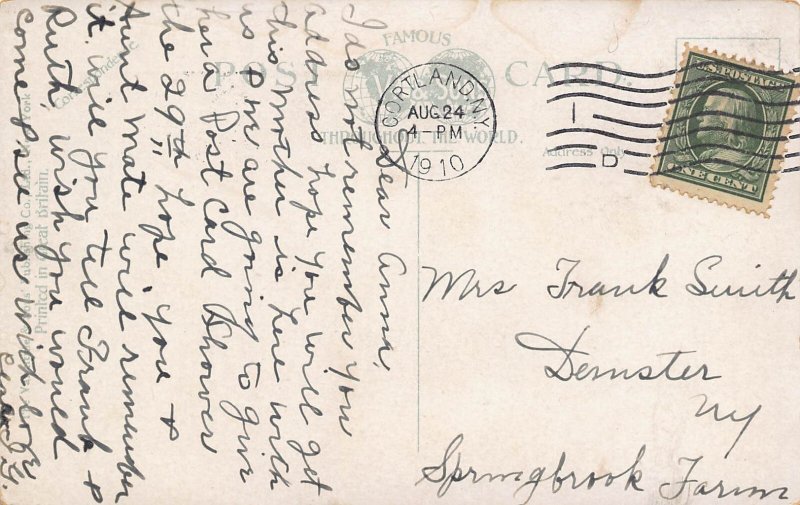 FAMOUS
POST CARD.
THROUGHOUT THE WORLD.
Correspondence.
Address Only
Printed in Great Britain.
CORTLAND, N.Y.
AUG 24
4-PM
1910
1
D
U.S. POSTAGE
ONE CENT
Dear Anna,
I do not remember you
address hope you will get
this mother is here with
us & we are going to give
her a Post Card Shower
the 29th hope you &
Aunt Mate will remember
it. will you tell Frank &
Ruth, wish you would
come & see us with love
Mrs Frank Smith
Demster
NY
Springbrook Farm